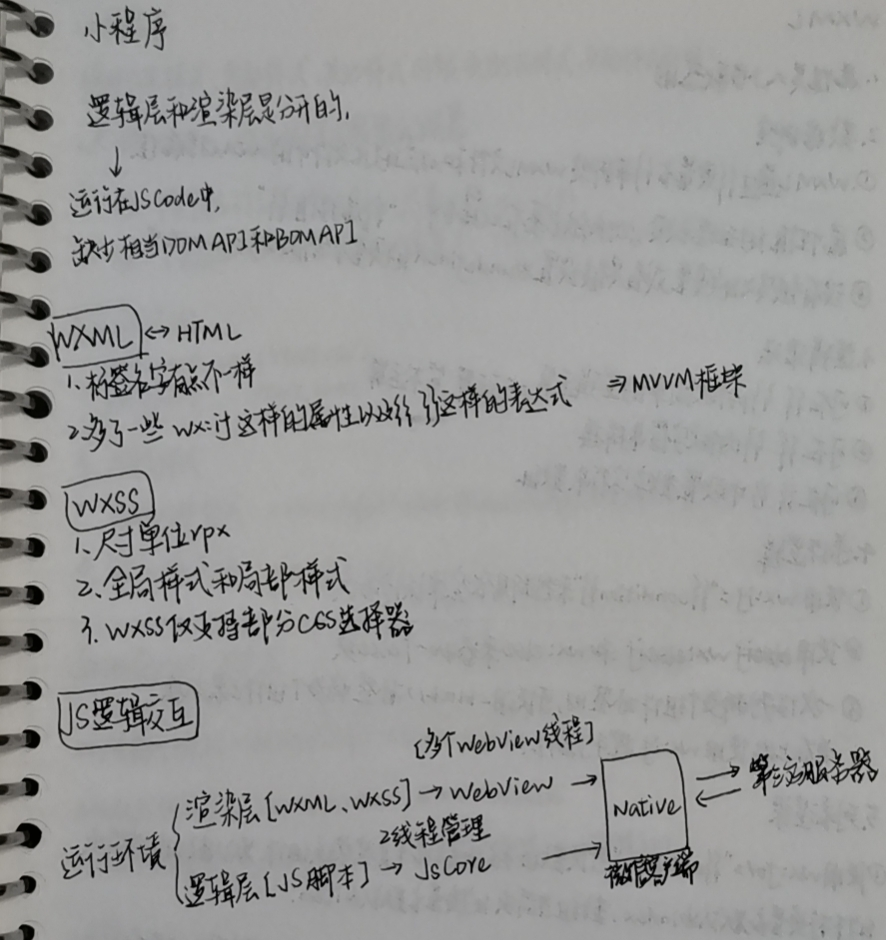 小程序
逻辑层和渲染层是分开的,
↓
运行在JSCode中,
缺少相当DOM API和BOM API
WXML ↔ HTML
1、标签名字有点不一样
2、多了一些 wx:if 这样的属性以及{{ }}这样的表达式 ⇒ MVVM框架
WXSS
1、尺寸单位rpx
2、全局样式和局部样式
3、WXSS仅支持部分CSS选择器
JS逻辑交互
[多个WebView线程]
运行环境
渲染层[WXML、WXSS] → WebView →
2线程管理
逻辑层[JS脚本] → JsCore →
Native
微信客户端
第三方服务器